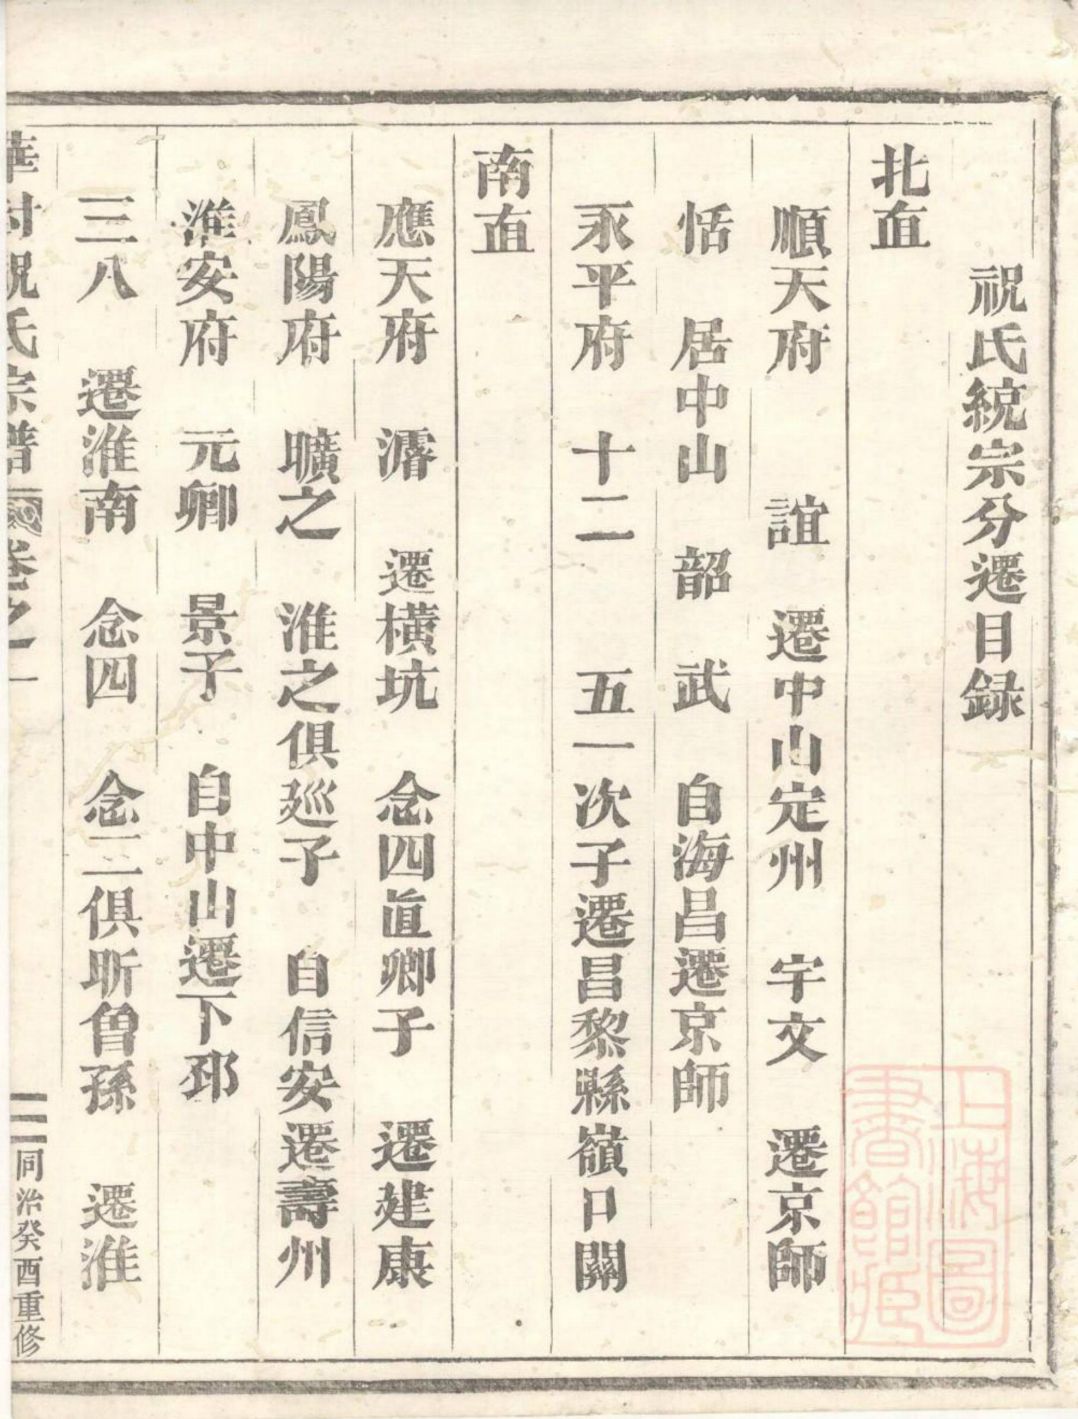 祝氏統宗分遷目録
北直
順天府 誼 遷中山定州 宇文 遷京師
恬 居中山 韶 武 自海昌遷京師
永平府 十二 五一次子遷昌黎縣嶺口關
南直
應天府 濬 遷橫坑 念四眞卿子 遷建康
鳳陽府 曠之 淮之俱廵子 自信安遷壽州
淮安府 元卿 景子 自中山遷下邳
三八 遷淮南 念四 念二俱昕曾孫 遷淮
祝氏宗譜 卷之一 二 同治癸酉重修
上海圖書館藏